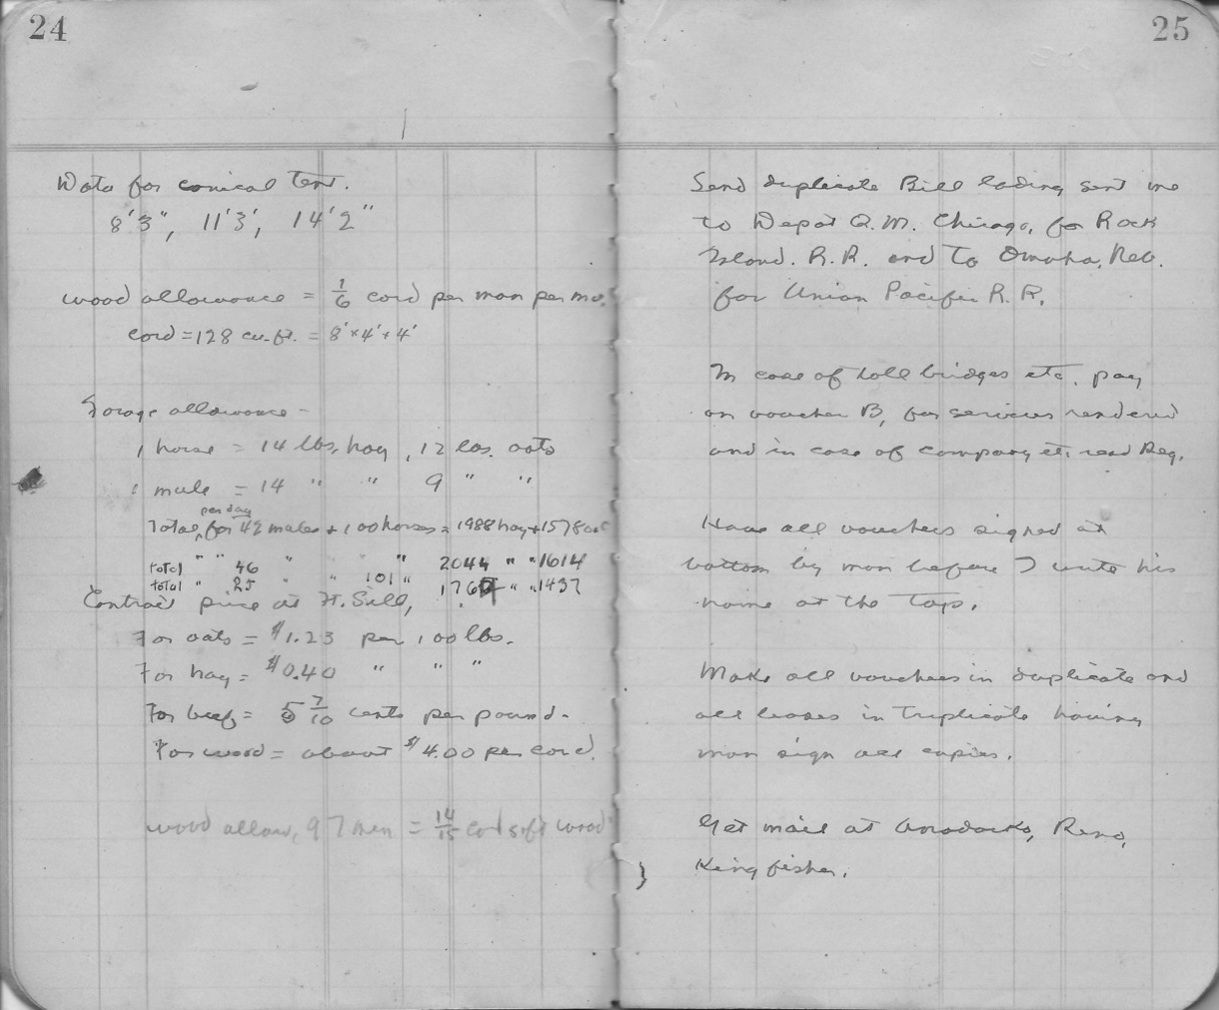 24
Data for conical tent.
8'3", 11'3", 14'2"
wood allowance = 1/6 cord per man per mo.
cord = 128 cu. ft. = 8' × 4' × 4'
Forage allowance -
1 horse = 14 lbs. hay, 12 lbs. oats
1 mule = 14 " " 9 " "
per day
Total, for 42 mules + 100 horses = 1988 hay + 1578 oats
total " " 46 " " " 2044 " " 1614
total " 25 " " 101 " 1764 " " 1437
Contract price at Ft. Sill,
For oats = $1.23 per 100 lbs.
For hay = $0.40 " " "
For beef = 5 7/10 cents per pound.
For wood = about $4.00 per cord.
wood allow, 97 men = 14/15 cord soft wood
25
Send duplicate Bill lading sent me
to Depot Q.M. Chicago, for Rock
Island. R.R. and to Omaha, Neb.
for Union Pacific R.R.
In case of toll bridges etc. pay
on voucher B, for services rendered
and in case of company etc. read Reg.
Have all vouchers signed at
bottom by man before I write his
name at the top.
Make all vouchers in duplicate and
all leases in triplicate having
man sign all copies.
Get mail at Anadarko, Reno,
Kingfisher.